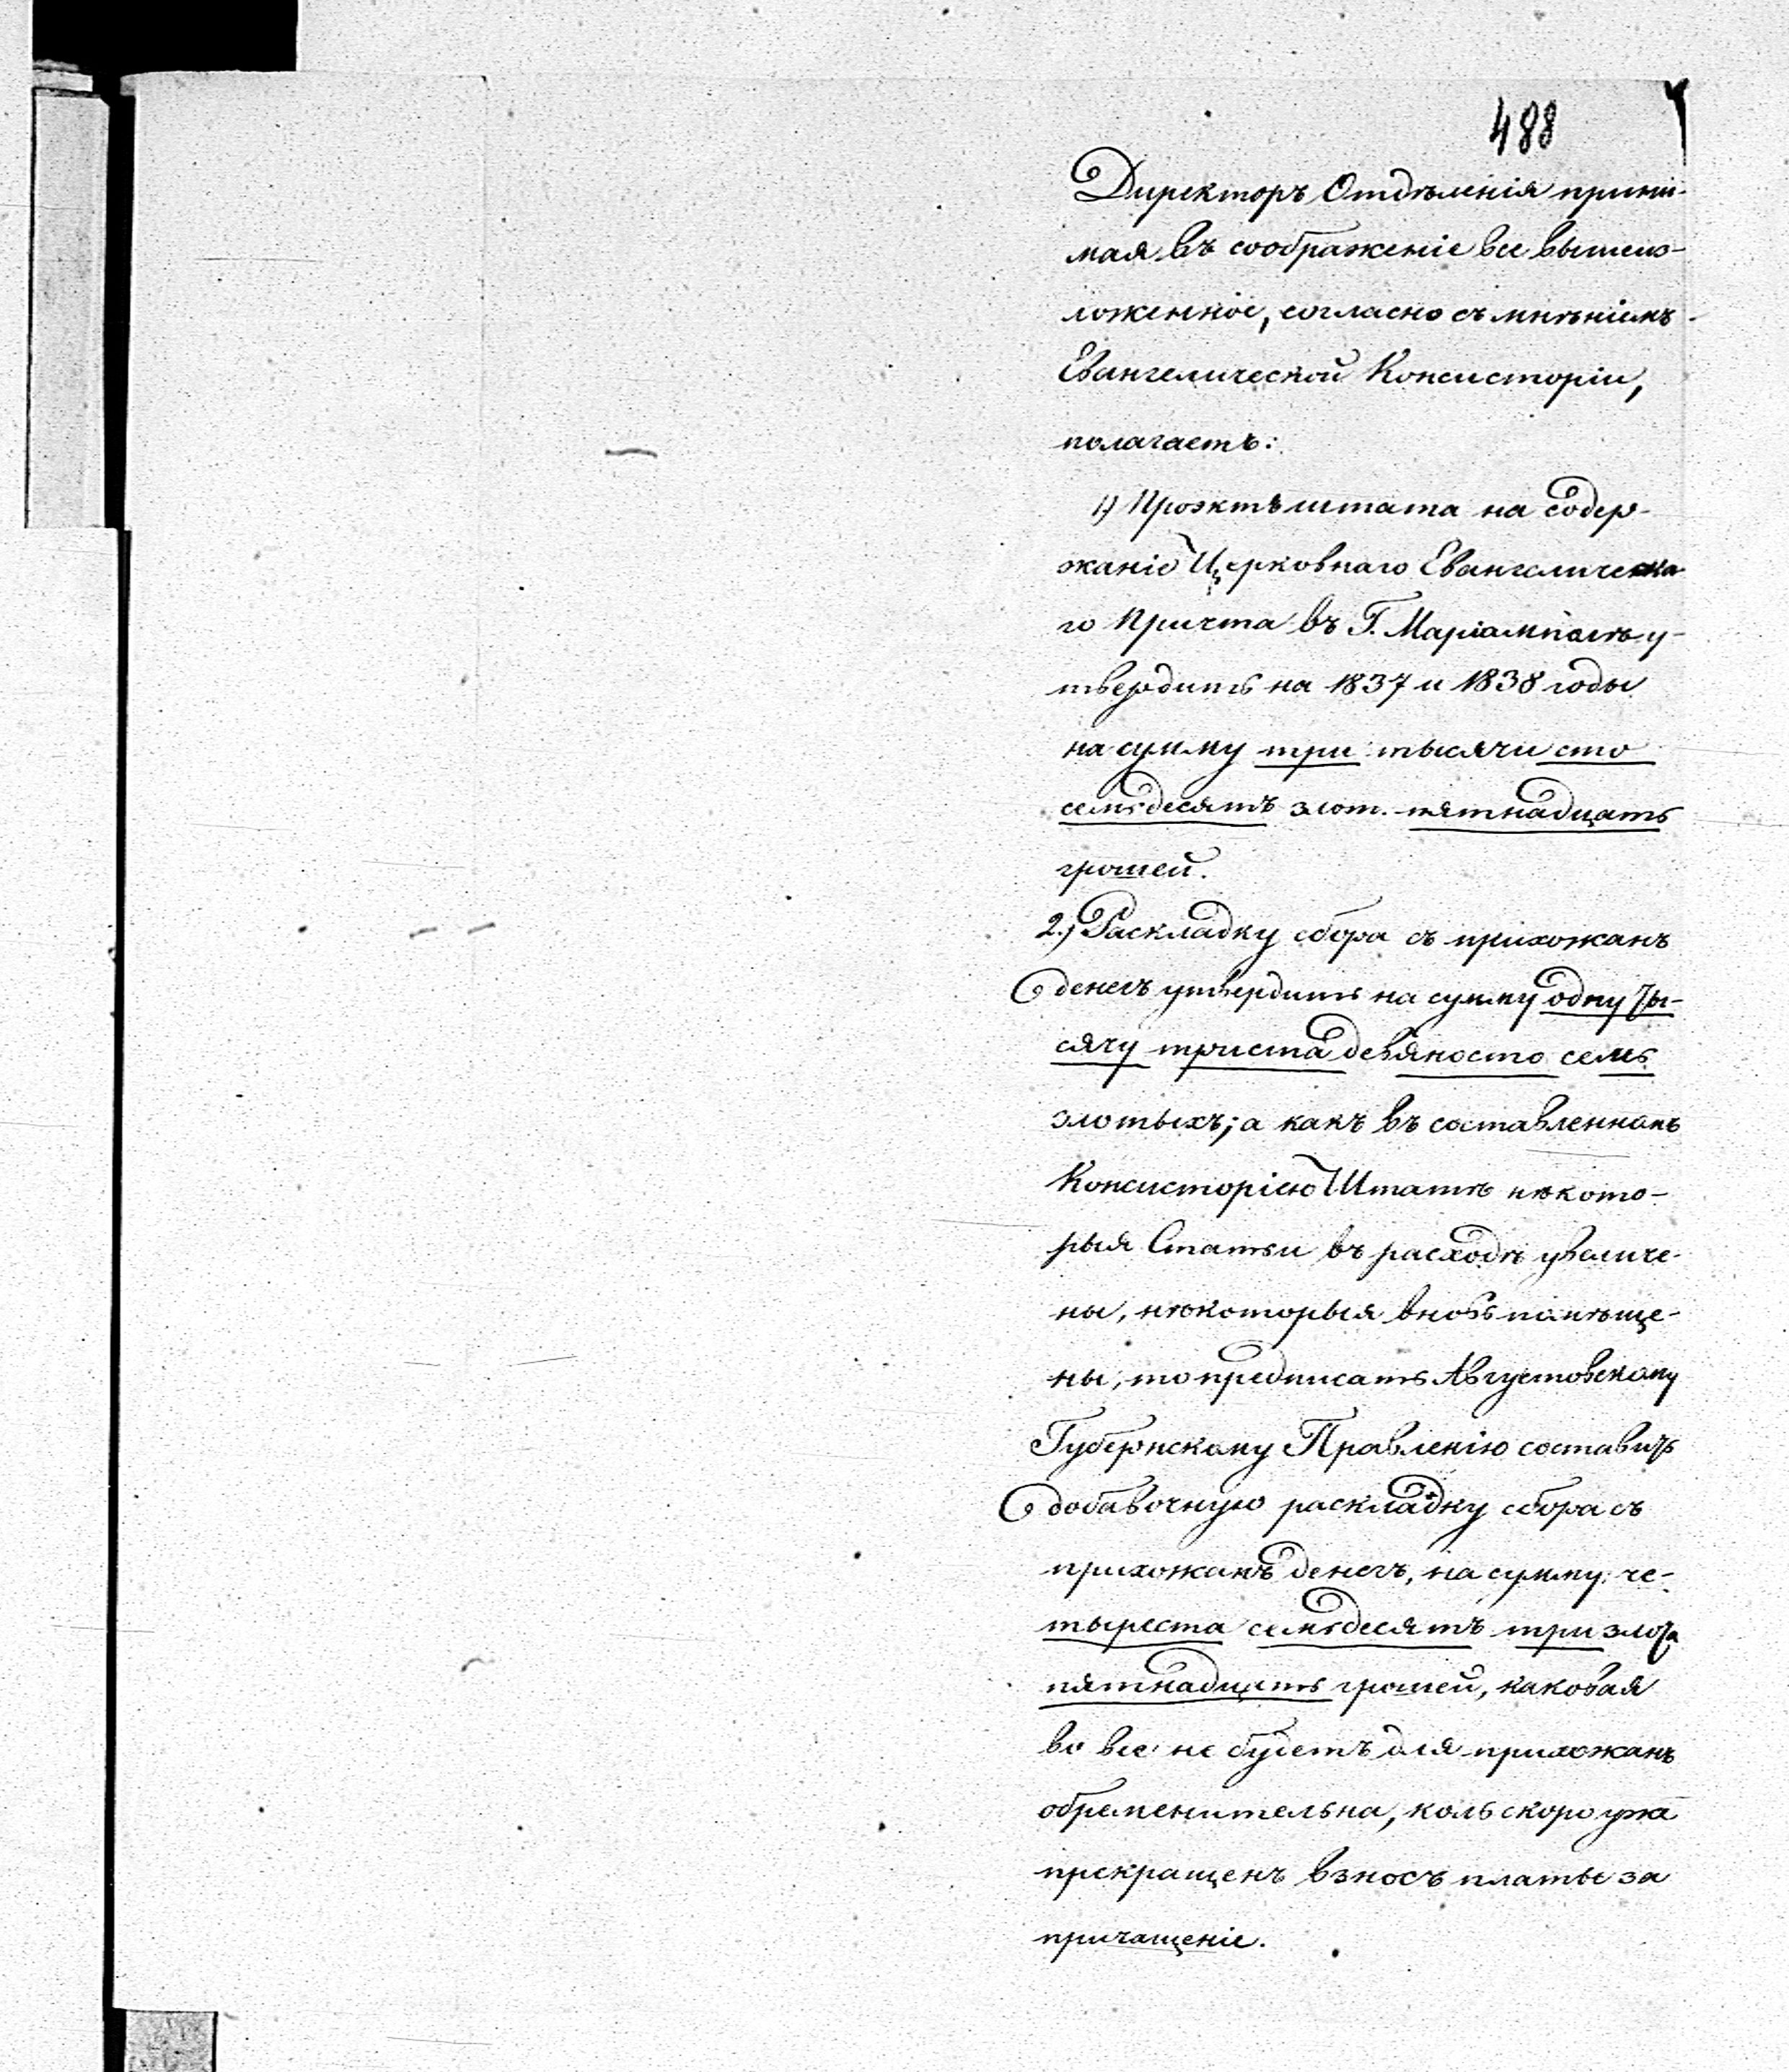 488
Директоръ Отдѣленія прини-
мая въ соображеніе все вышеиз-
ложенное, согласно съ мнѣніемъ
Евангелической Консисторіи,
полагаетъ:
1) Проэктъ штата на содер-
жаніе Церковнаго Евангелическа-
го Причта въ Г. Маріамполѣ у-
твердить на 1837 и 1838 годы
на сумму три тысячи сто
семьдесятъ злот. пятнадцать
грошей.
2.) Раскладку сбора съ прихожанъ
денегъ утвердить на сумму одну ты-
сячу триста девяносто семь
злотыхъ; а какъ въ составленномъ
Консисторіею Штатѣ нѣкото-
рыя Статьи въ расходѣ увеличе-
ны, нѣкоторыя вновь помѣще-
ны, то предписать Августовскому
Губернскому Правленію составить
добавочную раскладку сбора съ
прихожанъ денегъ, на сумму че-
тыреста семьдесятъ три злот
пятнадцать грошей, каковая
во все не будетъ для прихожанъ
обременительна, коль скоро уже
прекращенъ взносъ платы за
причащеніе.